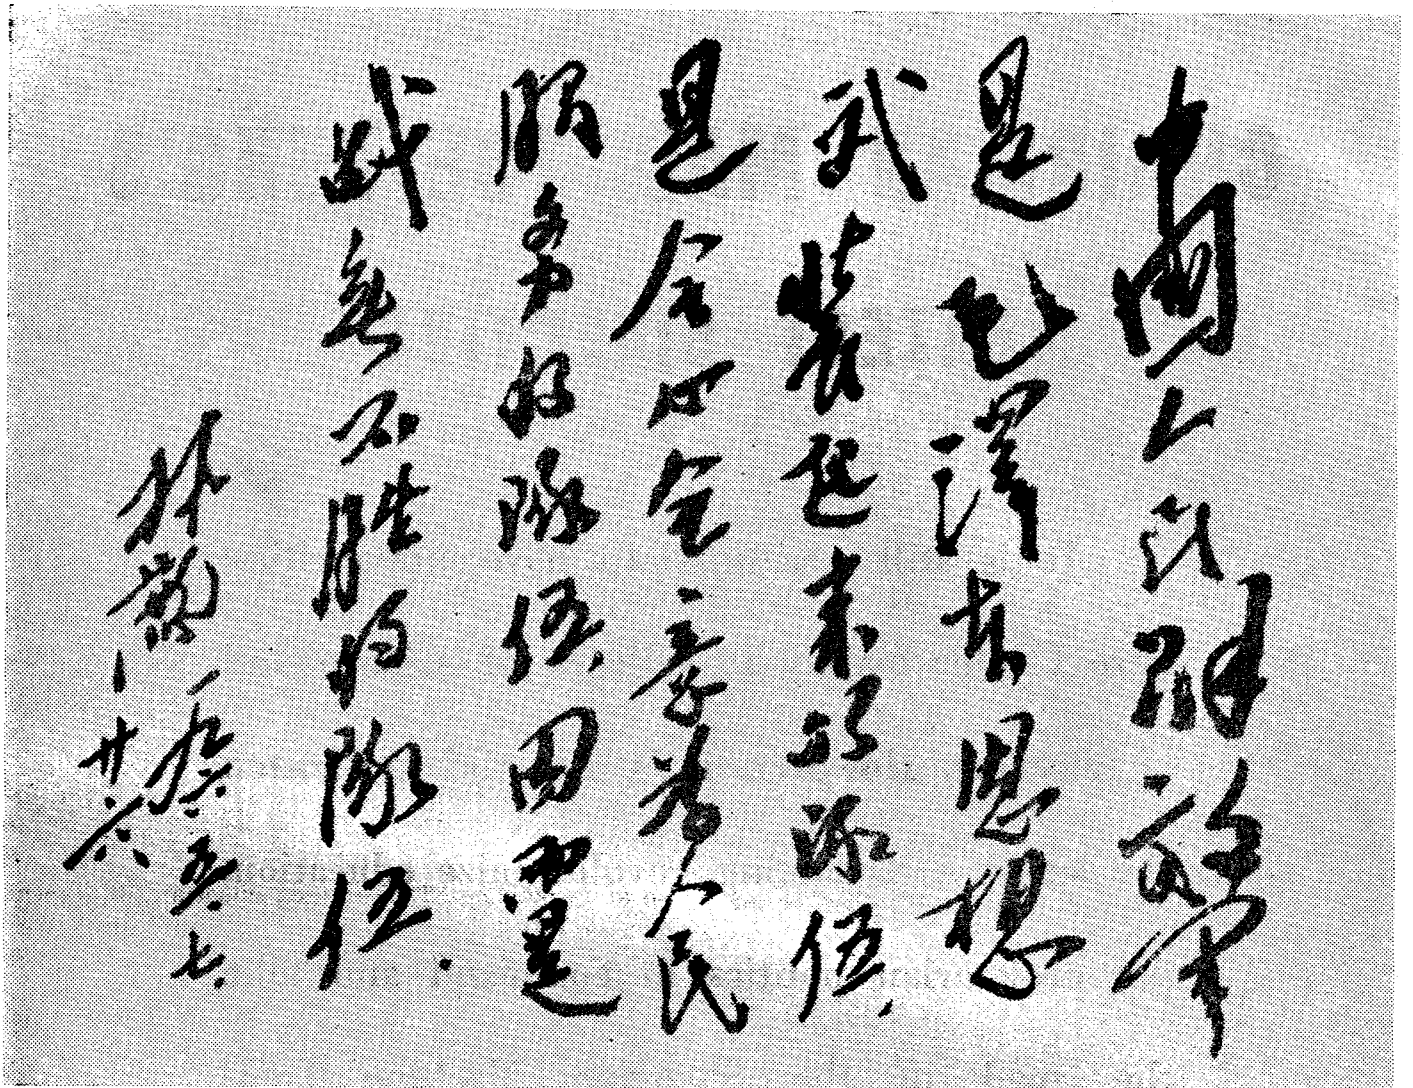 中國人民解放軍
是毛澤东思想
武裝起来的隊伍,
是全心全意为人民
服務的隊伍,因而是
战無不勝的隊伍.
林彪
一九六五.七.
廿六